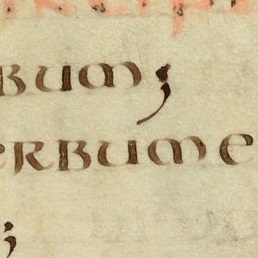 bum;
erbume
;